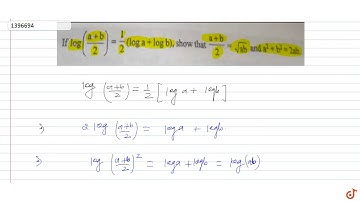 1396694
If log((a+b)/2) = 1/2 (log a + log b), show that (a+b)/2 = √ab and a² + b² = 2ab.
log (a+b/2) = 1/2 [log a + log b]
⇒ 2 log (a+b/2) = log a + log b
⇒ log (a+b/2)² = log a + log b = log (ab)